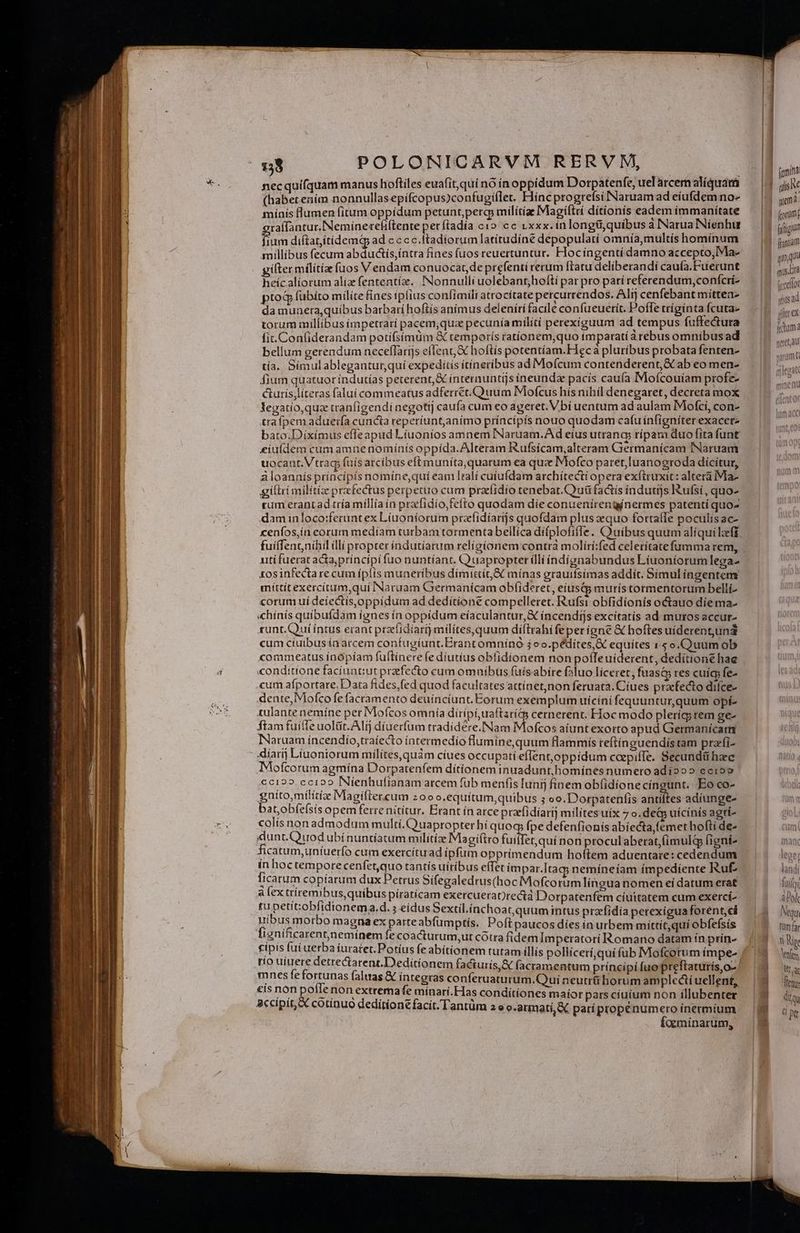 138 POLONICARVM RERVM,
nec quiſquam manus hoſtiles euaſit, qui nō in oppidum Dorpatenſe, uel arcem aliquam
(habet enim nonnullas epiſcopus) confugiſſet. Hinc progreſsi Naruam ad eiuſdem no-
minis flumen ſitum oppidum petunt, perq́; militiæ Magiſtri ditionis eadem immanitate
graſſantur. Nemine reſiſtente per ſtadia cIↄ cc lxxx. in longũ, quibus à Narua Nienhu
ſium diſtat, itidemq́; ad cccc. ſtadiorum latitudinē depopulati omnia, multis hominum
millibus ſecum abductis, intra fines ſuos reuertuntur. Hoc ingenti damno accepto, Ma-
giſter militiæ ſuos Vendam conuocat, de præſenti rerum ſtatu deliberandi cauſa. Fuerunt
heic aliorum aliæ ſententiæ. Nonnulli uolebant, hoſti par pro pari referendum, conſcri-
ptoq́; ſubito milite fines ipſius conſimili atrocitate percurrendos. Alij cenſebant mitten-
da munera, quibus barbari hoſtis animus deleniri facile conſueuerit. Poſſe triginta ſcuta-
torum millibus impetrari pacem, quæ pecunia militi perexiguum ad tempus ſuffectura
ſit. Conſiderandam potiſsimùm & temporis rationem, quo imparati à rebus omnibus ad
bellum gerendum neceſſarijs eſſent, & hoſtis potentiam. Hæc à pluribus probata ſenten-
tia. Simul ablegantur, qui expeditis itineribus ad Moſcum contenderent, & ab eo men-
ſium quatuor inducias peterent, & internuntijs ineundæ pacis cauſa Moſcouiam profe-
cturis, literas ſalui commeatus adferrēt. Quum Moſcus his nihil denegaret, decreta mox
legatio, quæ tranſigendi negotij cauſa cum eo ageret. Vbi uentum ad aulam Moſci, con-
tra ſpem aduerſa cuncta reperiunt, animo principis nouo quodam caſu inſigniter exacer-
bato. Diximus eſſe apud Liuonios amnem Naruam. Ad eius utranq́; ripam duo ſita ſunt
eiuſdem cum amne nominis oppida. Alteram Ruſsicam, alteram Germanicam Naruam
uocant. Vtraq́; ſuis arcibus eſt munita, quarum ea quæ Moſco paret, Iuanogroda dicitur,
à Ioannis principis nomine, qui eam Itali cuiuſdam architecti opera exſtruxit: alterā Ma-
giſtri militiæ præfectus perpetuo cum præſidio tenebat. Quū factis indutijs Ruſsi, quo-
rum erant ad tria millia in præſidio, feſto quodam die conuenirent inermes patenti quo-
dam in loco: ferunt ex Liuoniorum præſidiarijs quoſdam plus æquo fortaſſe poculis ac-
cenſos, in eorum mediam turbam tormenta bellica diſploſiſſe. Quibus quum aliqui læſi
fuiſſent, nihil illi propter indutiarum religionem contrà moliri: ſed celeritate ſumma rem,
uti fuerat acta, principi ſuo nuntiant. Quapropter illi indignabundus Liuoniorum lega-
tos infecta re cum ipſis muneribus dimittit, & minas grauiſsimas addit. Simul ingentem
mittit exercitum, qui Naruam Germanicam obſideret, eiusq́; muris tormentorum belli-
corum ui deiectis, oppidum ad deditionē compelleret. Ruſsi obſidionis octauo die ma-
chinis quibuſdam ignes in oppidum eiaculantur, & incendijs excitatis ad muros accur-
runt. Qui intus erant præſidiarij milites, quum diſtrahi ſe per ignē & hoſtes uiderent, unà
cum ciuibus in arcem confugiunt. Erant omninò 300. pedites, & equites 150. Quum ob
commeatus inopiam ſuſtinere ſe diutius obſidionem non poſſe uiderent, deditionē hac
conditione faciunt: ut præfecto cum omnibus ſuis abire ſaluo liceret, ſuasq́; res cuiq́; ſe-
cum aſportare. Data fides, ſed quod facultates attinet, non ſeruata. Ciues præfecto diſce-
dente, Moſco ſe ſacramento deuinciunt. Eorum exemplum uicini ſequuntur, quum opi-
tulante nemine per Moſcos omnia diripi, uaſtariq́; cernerent. Hoc modo pleriq́; rem ge-
ſtam fuiſſe uolūt. Alij diuerſum tradidêre. Nam Moſcos aiunt exorto apud Germanicam
Naruam incendio, traiecto intermedio flumine, quum flammis reſtinguendis tam præſi-
diarij Liuoniorum milites, quàm ciues occupati eſſent, oppidum cœpiſſe. Secundū hæc
Moſcorum agmina Dorpatenſem ditionem inuadunt, homines numero ad iↄↄↄ ccIↄↄ
ccIↄↄ ccIↄↄ Nienhuſianam arcem ſub menſis Iunij finem obſidione cingunt. Eo co-
gnito, militiæ Magiſter cum 2000. equitum, quibus 500. Dorpatenſis antiſtes adiunge-
bat, obſeſsis opem ferre nititur. Erant in arce præſidiarij milites uix 70. deq́; uicinis agri-
colis non admodum multi. Quapropter hi quoq́; ſpe defenſionis abiecta, ſemet hoſti de-
dunt. Quod ubi nuntiatum militiæ Magiſtro fuiſſet, qui non procul aberat, ſimulq́; ſigni-
ficatum, uniuerſo cum exercitu ad ipſum opprimendum hoſtem aduentare: cedendum
in hoc tempore cenſet, quo tantis uiribus eſſet impar. Itaq́; nemine iam impediente Ruſ-
ſicarum copiarum dux Petrus Siſegaledrus (hoc Moſcorum lingua nomen ei datum erat
à ſex triremibus, quibus piraticam exercuerat) rectà Dorpatenſem ciuitatem cum exerci-
tu petit: obſidionem a. d. 3 eidus Sextil. inchoat, quum intus præſidia perexigua forent, ci
uibus morbo magna ex parte abſumptis. Poſt paucos dies in urbem mittit, qui obſeſsis
ſignificarent, neminem ſe coacturum, ut cōtra fidem Imperatori Romano datam in prin-
cipis ſui uerba iuraret. Potius ſe abitionem tutam illis polliceri, qui ſub Moſcorum impe-
rio uiuere detrectarent. Deditionem facturis, & ſacramentum principi ſuo præſtaturis, o-
mnes ſe fortunas ſaluas & integras conſeruaturum. Qui neutrū horum amplecti uellent,
eis non poſſe non extrema ſe minari. Has conditiones maior pars ciuium non illubenter
accipit, & cōtinuò deditionē facit. Tantùm 200. armati, & pari propè numero inermium
fœminarum,